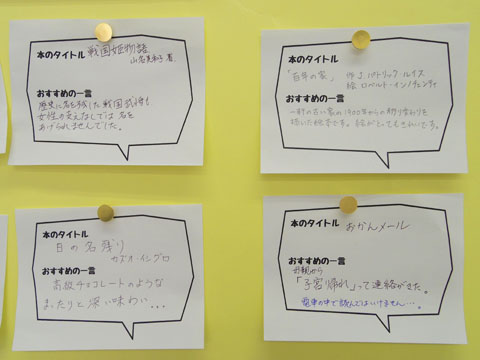 本のタイトル 戦国姫物語
山名美和子 著
おすすめの一言
歴史に名を残した戦国武将も
女性の支えなしでは名を
あげられませんでした。
本のタイトル
「百年の家」 作 J.パトリック ルイス
絵 ロベルト・インノチェンティ
おすすめの一言
一軒の古い家の1900年からの移り変わりを
描いた絵本です。絵がとってもきれいです。
本のタイトル
日の名残り
カズオ・イシグロ
おすすめの一言
高級チョコレートのような
まったりと深い味わい...
本のタイトル
おかんメール
おすすめの一言
母親から
「子宮に帰れ」って連絡がきた。
電車の中で読んではいけません…。